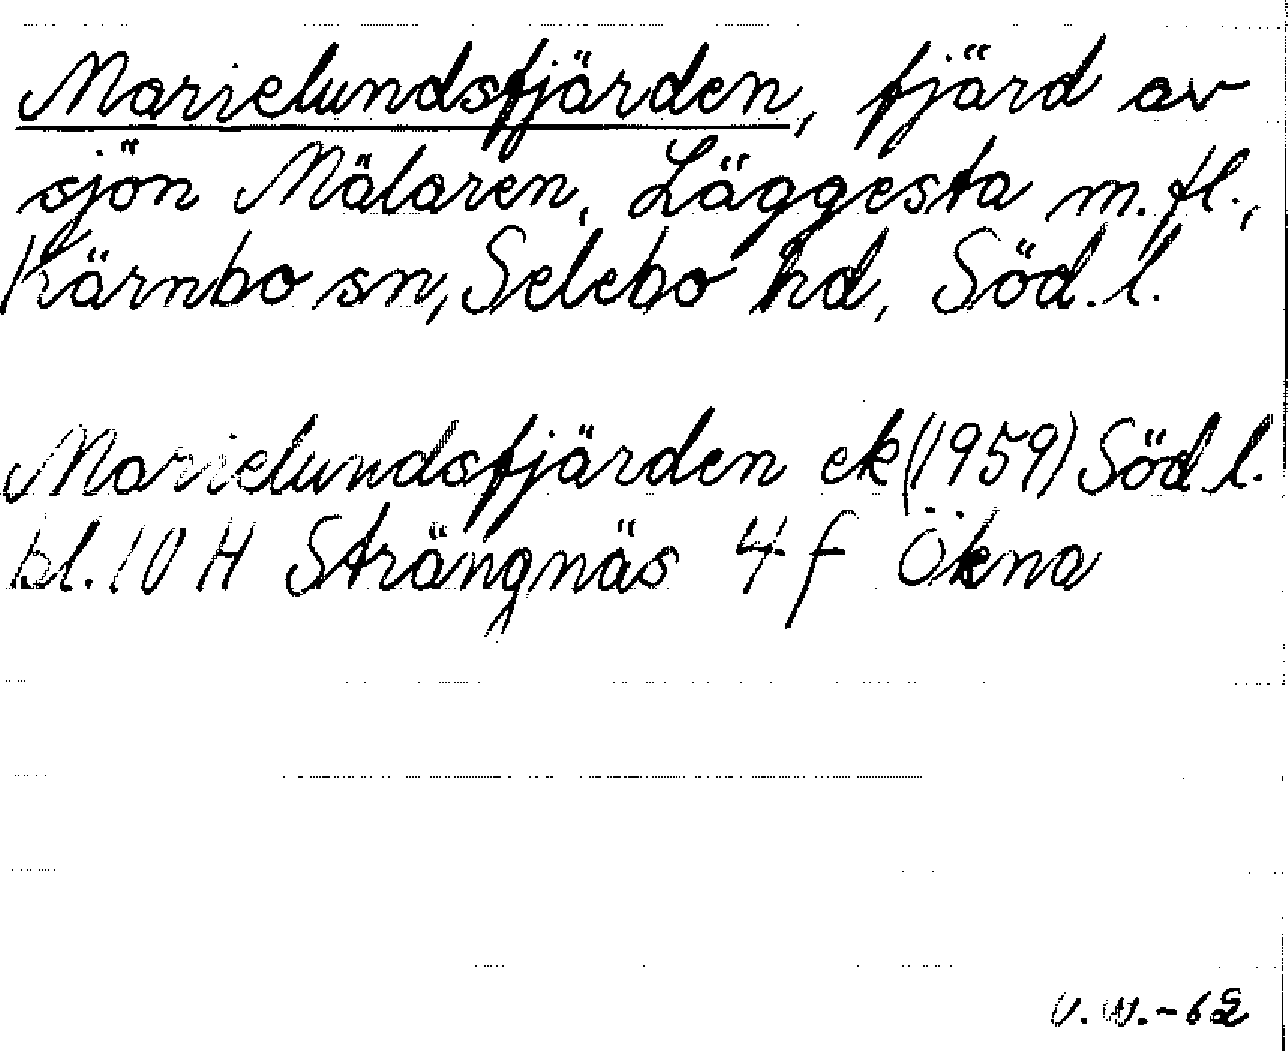 Marielundsfjärden, fjärd av
sjön Mälaren, Läggesta m.fl.,
Kärnbo sn, Selebo hd, Söd.l.
Marielundsfjärden ek (1959) Söd l.
bl. 10 H Strängnäs 4 f Ökna
V. W. - 62